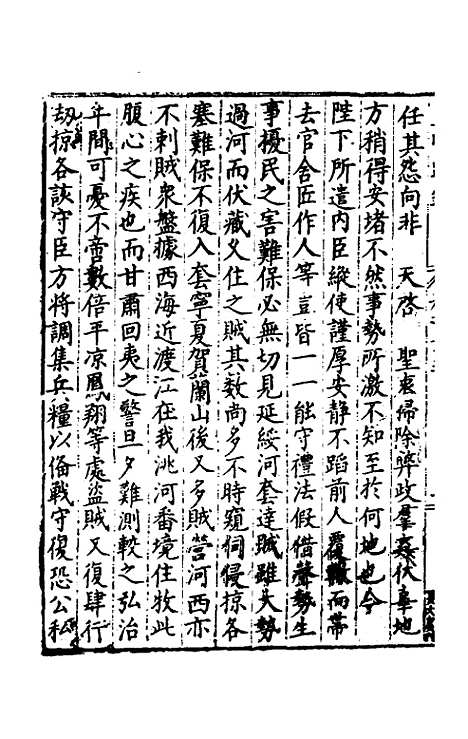 任其怨向非　天啓　聖衷掃除弊政羣姦伏辜地
方稍得安堵不然事勢所激不知至於何地也今
陛下所遣内臣縱使謹厚安靜不蹈前人覆轍而帶
去官舎匠作人等豈皆一一能守禮法假借聲勢生
事擾民之害難保必無切見延綏河套達賊雖大勢
過河而伏藏久住之賊其數尚多不時窺伺侵掠各
塞難保不復入套寧夏賀蘭山後又多賊營河西亦
不剌賊衆盤據西海近渡江在我洮河番境住牧此
腹心之疾也而甘肅回夷之警旦夕難測較之弘治
年間可憂不啻數倍平凉鳳翔等處盗賊又復肆行
刼掠各該守臣方將調集兵糧以俻戰守復恐公私